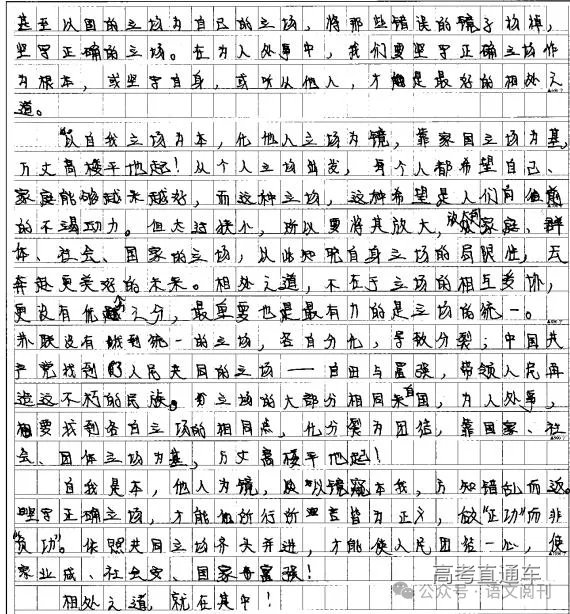 甚至以国的立场为自己的立场，将那些错误的镜子扬掉，
坚守正确的立场。在为人处事中，我们要坚守正确立场作
为根本，或坚守自身，或听从他人，才是最好的相处之
道。
以自我立场为本，化他人立场为镜，靠家国立场为基，
万丈高楼平地起！从个人立场出发，每个人都希望自己、
家庭能够越来越好，而这种立场，这种希望是人们向前
的不竭动力。但太过狭小，所以要将其放大，放到家庭、群
体、社会、国家的立场，从此知晓自身立场的局限性，去
奔赴更美好的未来。相处之道，不在于立场的相互妥协，
更没有优劣之分，最重要也是最有力的是立场的统一。
苏联没有找到统一的立场，各自分化，导致分裂；中国共
产党找到了人民共同的立场——自由与富强，带领人民再
造这不朽的民族。立场的大部分相同来自国，为人处事，
要找到各自立场的相同点，化分裂为团结，靠国家、社
会、团体立场为基，万丈高楼平地起！
自我是本，他人为镜，以镜窥本我，方知错乱而返。
坚守正确立场，才能所行所言皆为正义，做“正功”而非
“负功”。依照共同立场齐头并进，才能使人民团结一心，使
家业成、社会安、国家富强！
相处之道，就在其中！
高考直通车
公众号·语文阅刊